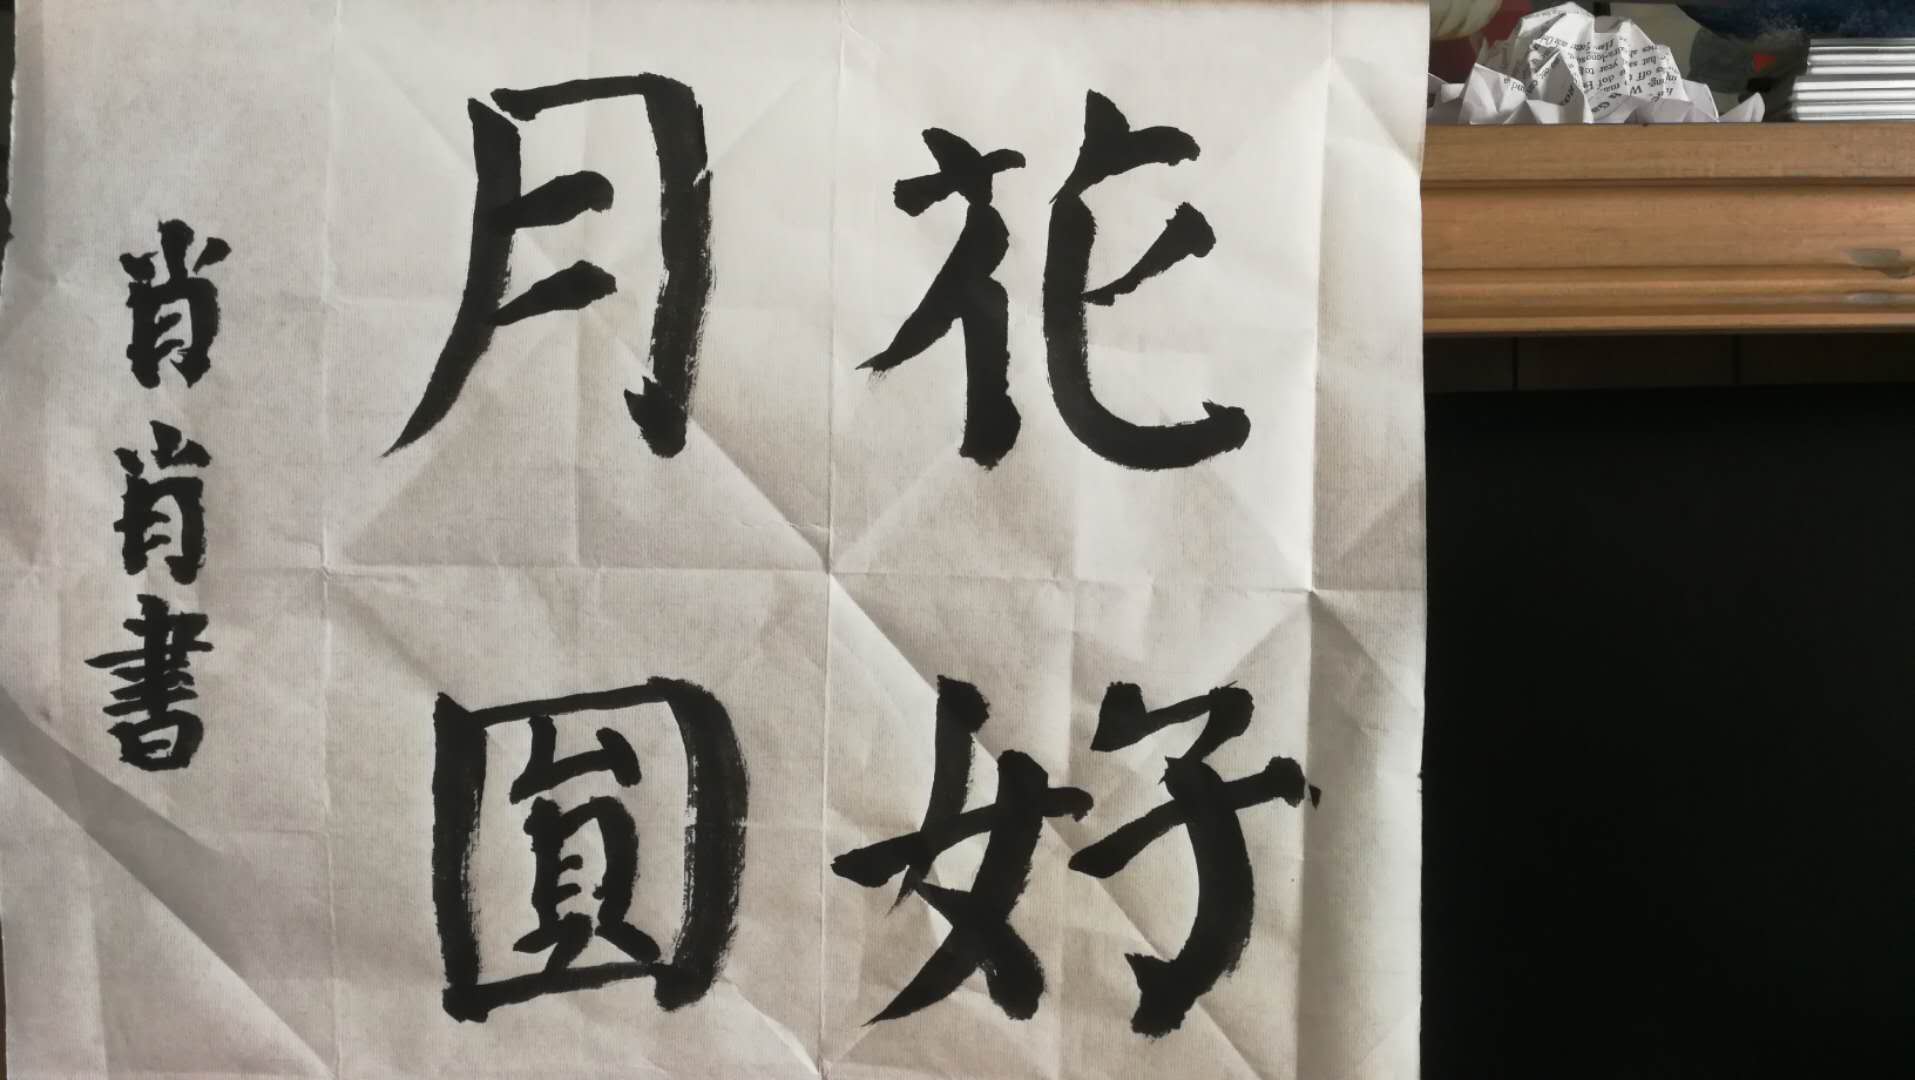 花好
月圓
肖肖書